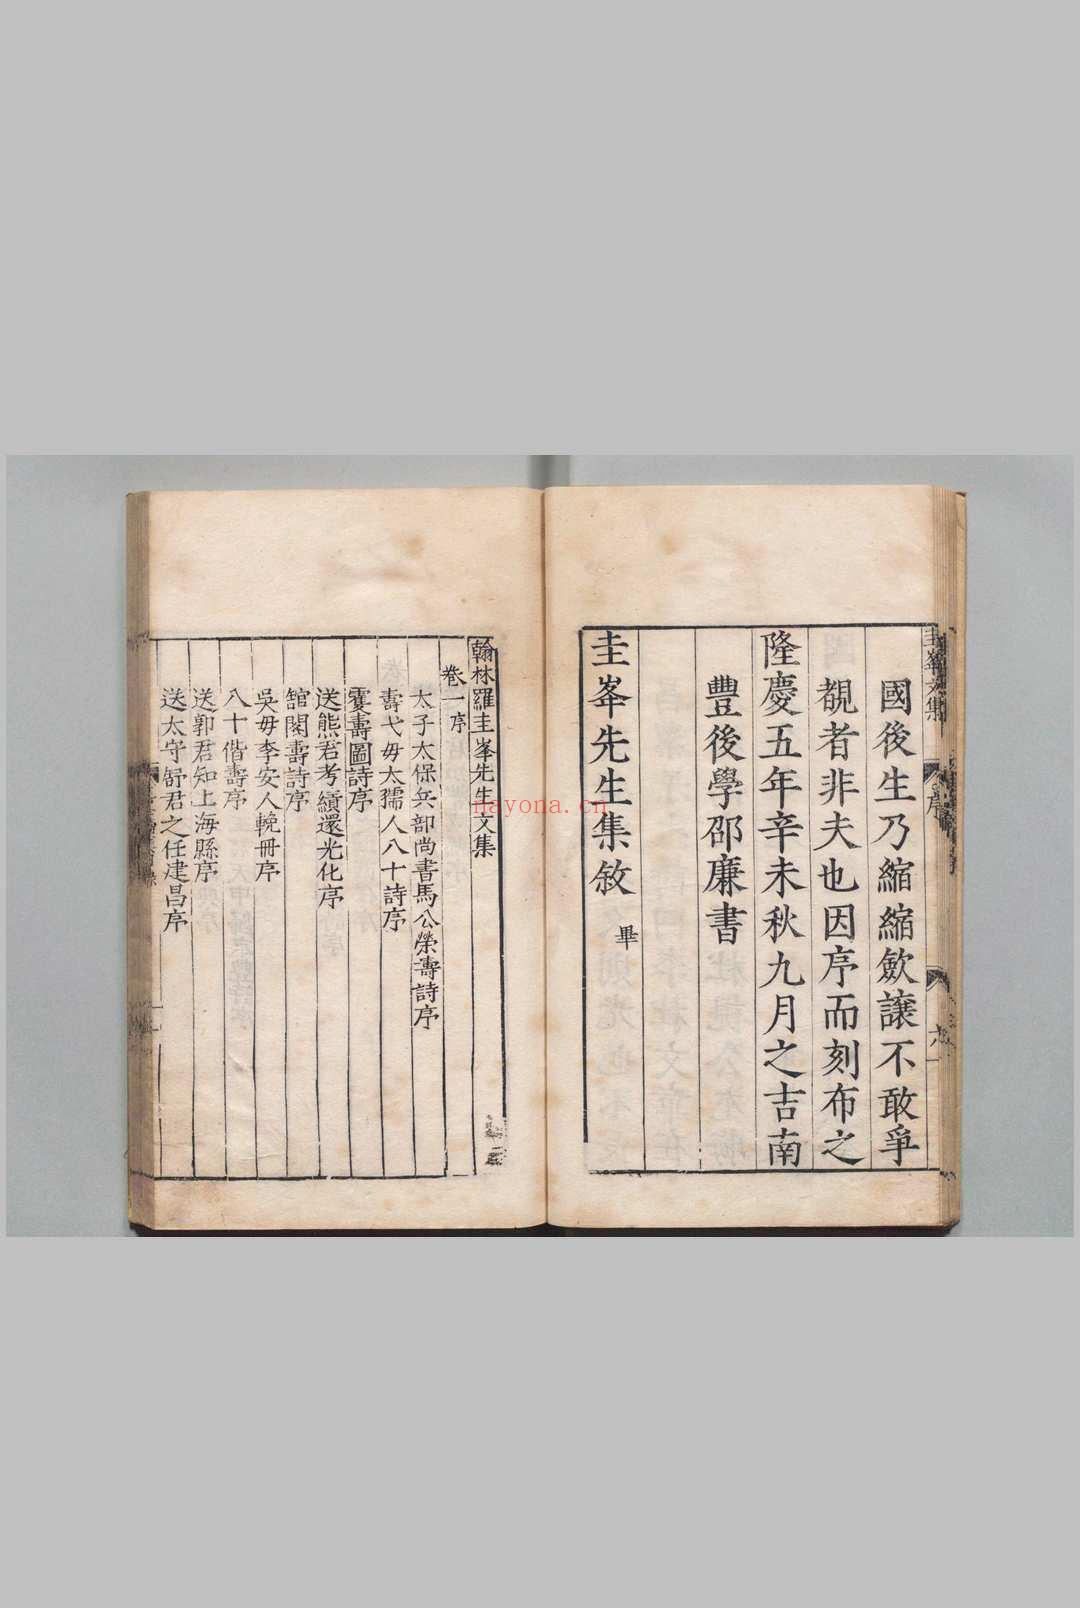 國後生乃縮縮歛讓不敢爭
覩者非夫也因序而刻布之
隆慶五年辛未秋九月之吉南
豐後學邵廉書
圭峯先生集敘 畢
圭峯文集
序
六
翰林羅圭峯先生文集
卷一 序
太子太保兵部尚書馬公榮壽詩序
壽弋母太孺人八十詩序
雙壽圖詩序
送熊君考績還光化序
舘閣壽詩序
吳母李安人輓冊序
八十偕壽序
送郭君知上海縣序
送太守舒君之任建昌序
nayona.cn